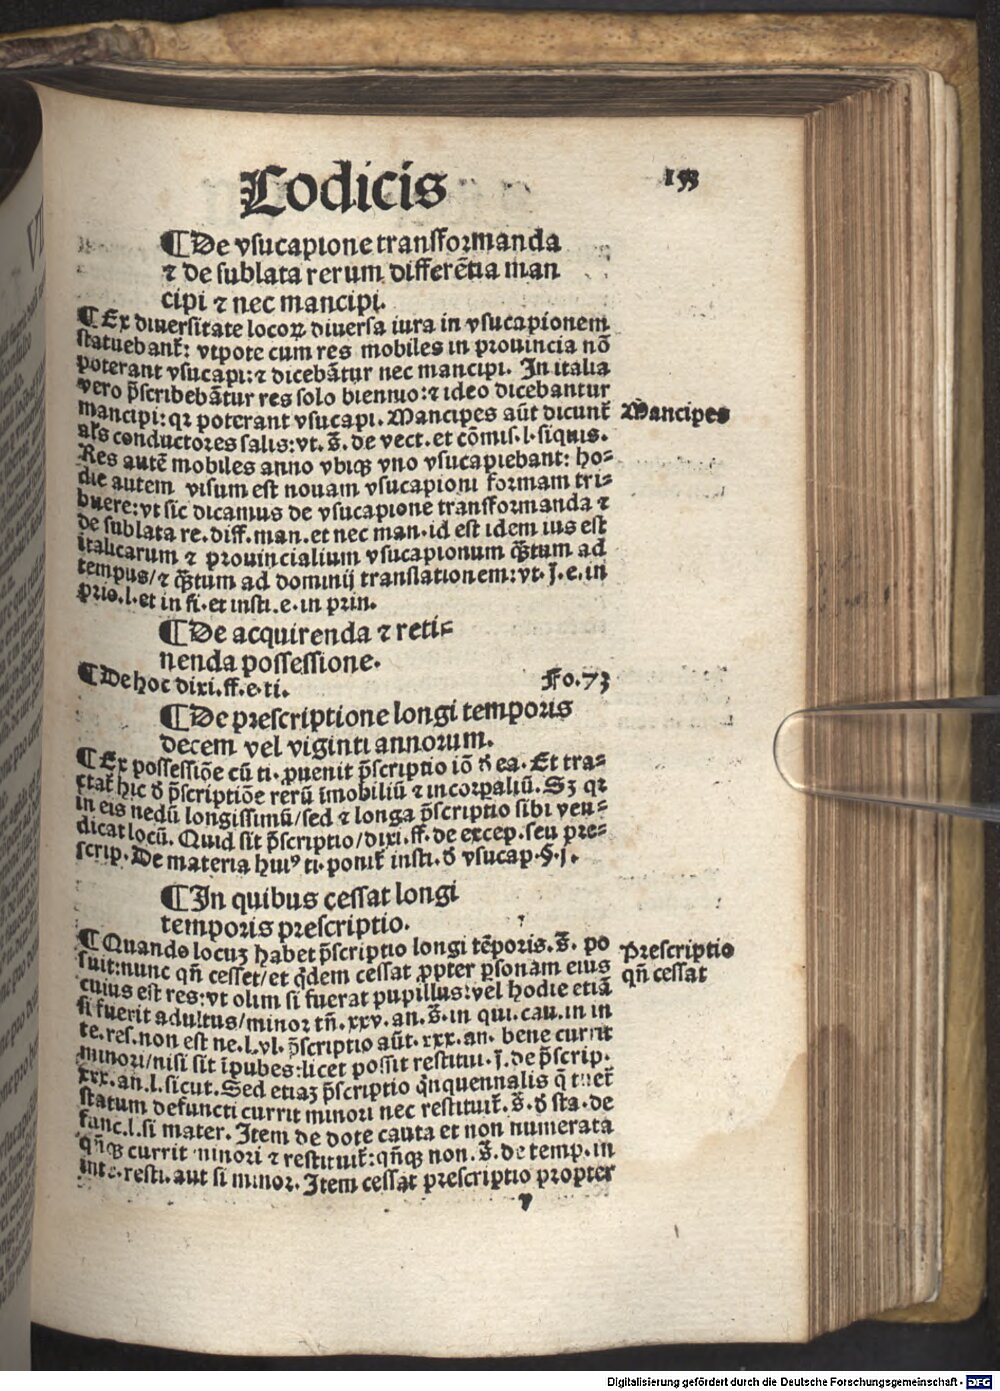 Codicis
¶De vsucapione transformanda
⁊ de sublata rerum differētia man
cipi ⁊ nec mancipi.
¶Ex diuersitate locoꝝ diuersa iura in vsucapionem
statuebant᷑: vtpote cum res mobiles in prouincia nō
poterant vsucapi:⁊ dicebātur nec mancipi. In italia
vero p̄scribebātur res solo biennio:⁊ ideo dicebantur
mancipi:qꝛ poterant vsucapi. Mancipes aūt dicunt᷑
Mancipes
al's conductores salis:vt.s̄. de vect.et cōmis.l.siquis.
Res autē mobiles anno vbiqꝫ vno vsucapiebant: ho⸗
die autem visum est nouam vsucapioni formam tri⸗
buere:vt sic dicamus de vsucapione transformanda ⁊
de sublata re.diff.man.et nec man.id est idem ius est
italicarum ⁊ prouincialium vsucapionum q̄ꝫtum ad
tempus/⁊ q̄ꝫtum ad dominij translationem:vt.j.e.in
prio.l.et in fi.et insti.e.in prin.
¶De acquirenda ⁊ reti⸗
nenda possessione.
¶De hoc dixi.ff.e.ti. Fo.73
¶De prescriptione longi temporis
decem vel viginti annorum.
¶Ex possessiōe cū ti.ꝓuenit p̄scriptio iō đ ea. Et tra⸗
ctat᷑ hic đ p̄scriptiōe rerū imobiliū ⁊ incorpaliū. Sꝫ qꝛ
in eis nedū longissimū/sed ⁊ longa p̄scriptio sibi ven⸗
dicat locū. Quid sit p̄scriptio/dixi.ff.de excep.seu pre⸗
scrip. De materia huiꝰ ti.ponit᷑ insti.đ vsucap.§.j.
¶In quibus cessat longi
temporis prescriptio.
¶Quando locuꝫ habet p̄scriptio longi tēporis.s̄. po
Prescriptio
qn̄ cessat
suit:nunc qn̄ cesset/et q̇dem cessat ꝓpter ꝑsonam eius
cuius est res:vt olim si fuerat pupillus:vel hodie etiā
si fuerit adultus/minor tn̄.xxv.an.s̄.in qui.cau.in in
te.res.non est ne.l.vl. p̄scriptio aūt.xxx.an. bene currit
minori/nisi sit īpubes:licet possit restitui.j.de p̄scrip.
xxx.an.l.sicut. Sed etiaꝫ p̄scriptio q̇nquennalis q̄ tuet᷑
statum defuncti currit minori nec restituit᷑.s̄.đ sta.de
func.l.si mater. Item de dote cauta et non numerata
qn̄qꝫ currit minori ⁊ restituit᷑:qn̄qꝫ non.s̄.de temp.in
inte.resti.aut si minor. Item cessat prescriptio propter
Digitalisierung gefördert durch die Deutsche Forschungsgemeinschaft - DFG